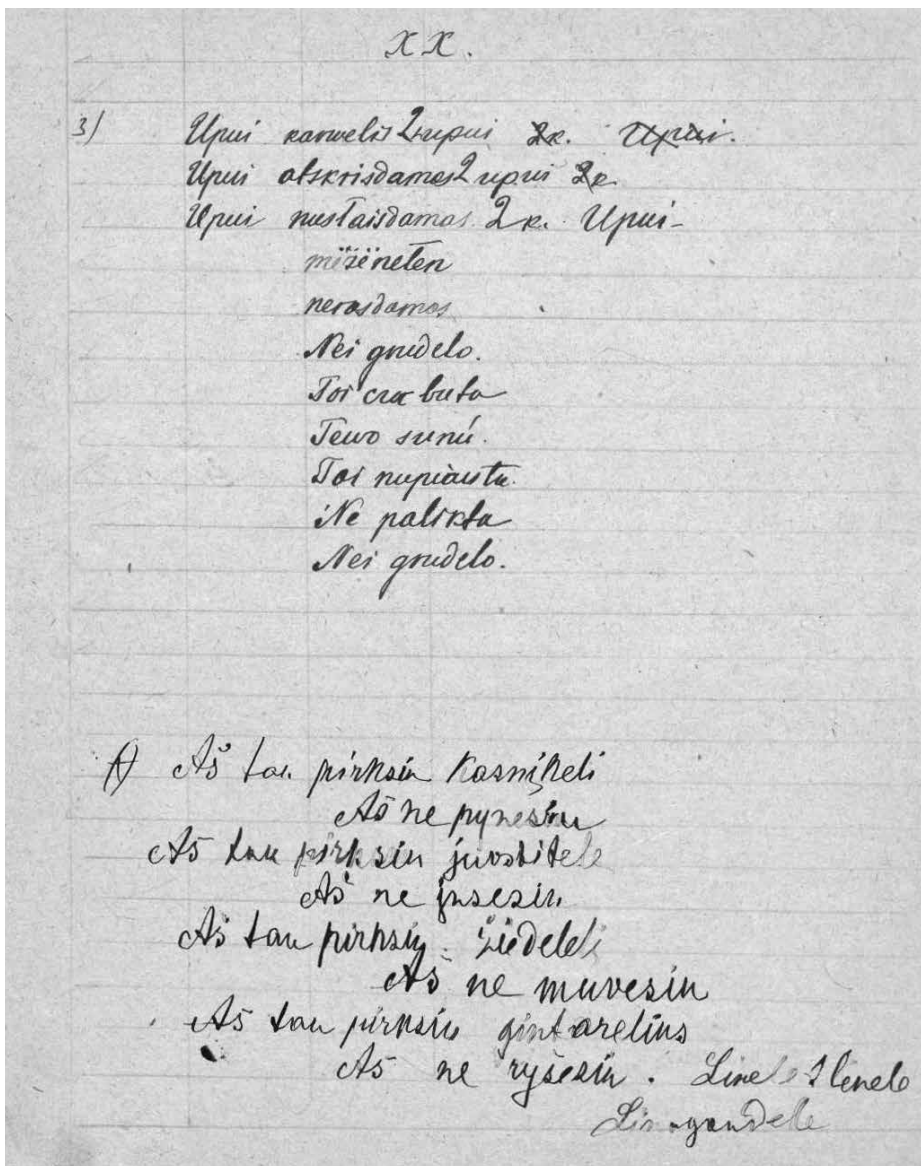 XX.
3/ Upui karwelis 2 upui 2k. Upui.
Upui atskrisdamas 2 upui 2k
Upui nustaisdamas 2k. Upui-
nerasdamas
Nei grudelo.
Toi cia buta
Tewo sunú.
Toi nupiauta
Ne palikta
Nei grudelo.
Aš tau pirksiu kasnikeli
Aš ne pynesiu
Aš tau pirksiu juostitele
Aš ne jusesiu
Aš tau pirksiu žiedeleli
Aš ne muvesiu
Aš tau pirksiu gintarelius
Aš ne ryšesiu. Linele 2 lenele